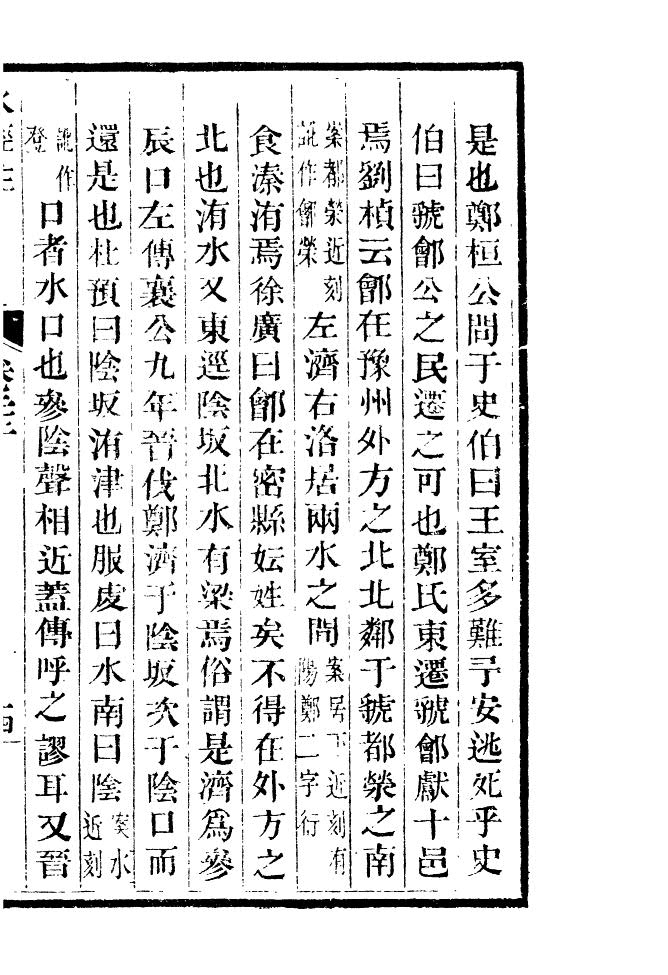 是也鄭桓公問于史伯曰王室多難予安逃死乎史
伯曰虢鄶公之民遷之可也鄭氏東遷虢鄶獻十邑
焉劉楨云鄶在豫州外方之北北鄰于虢都滎之南
案都滎近刻訛作鄶滎左濟右洛居兩水之間案居下近刻有陽鄭二字衍
食溱洧焉徐廣曰鄶在密縣妘姓矣不得在外方之
北也洧水又東逕陰坂北水有梁焉俗謂是濟為參
辰口左傳襄公九年晉伐鄭濟于陰坂次于陰口而
還是也杜預曰陰坂洧津也服虔曰水南曰陰案水近刻
訛作登口者水口也參陰聲相近蓋傳呼之謬耳又晉
水經注